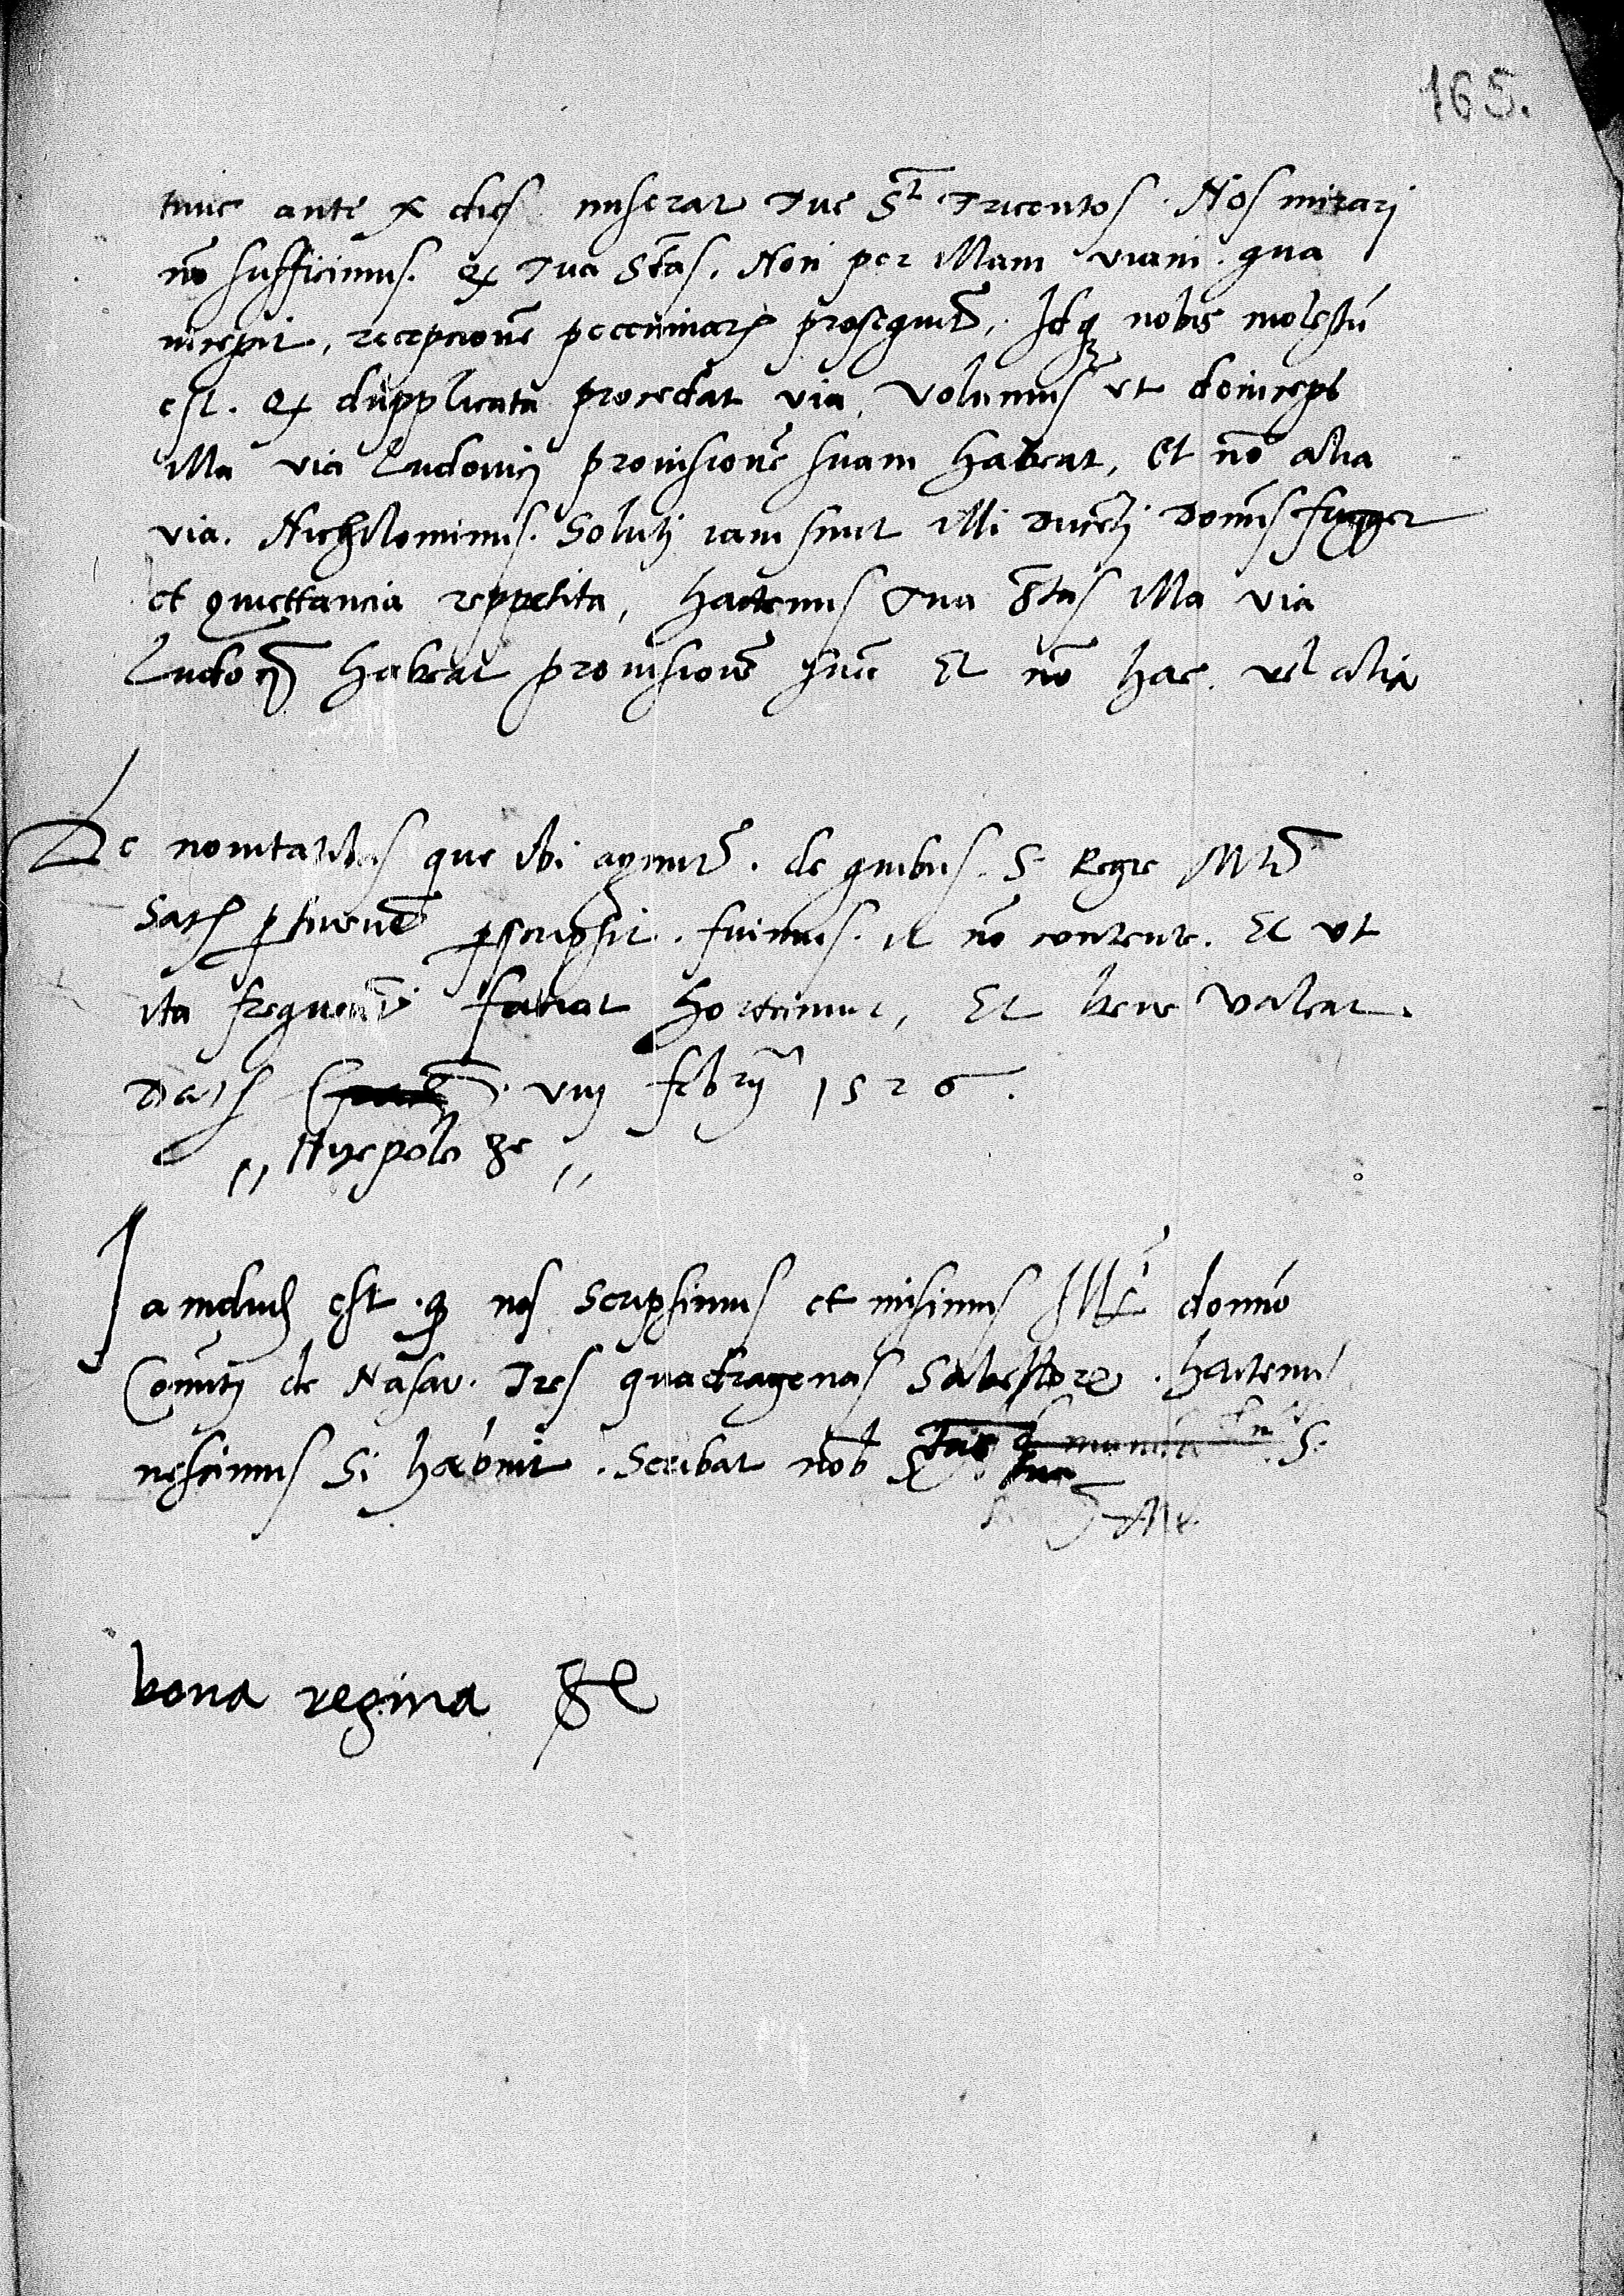 165.
tunc ante x dies miserat Tue S^ti Tricentos. Nos mirari
nō sufficimus. Q Tua S̄tas. Non per illam viam. qua
incepit, recepcionē peccuniarꝝ prosequit~, Idq nobis molestū
est. Q dupplicata procedat via, Volumus ut deinceps
illa via Ludovici provisionē suam habeat, et nō alia
via. Nichilominus. Soluti iam sunt illi Ducēti Domīs fugger
et Quiettancia reppetita, hactenus Tua S̄tas illa via
Ludovi habeat provisionē suā Et nō hac. vel alia
De novitatibus que ibi agunt~. de quibus. S. Regie M^ti
Satis p perscripsit. fuimus. nō contente. Et ut
ita frequent~ faciat hortamur, Et bene valeat.
Datꝭ viij febrij 1526.
,, Nyepolo ,,
Jamdudū est. q nos scripsimus et misimus Illᵐ domino
Comiti de Nasav. Tres quadragenas Sabellorꝝ. hactenus
nescimus Si habuit. Scribat nob S.
bona regina